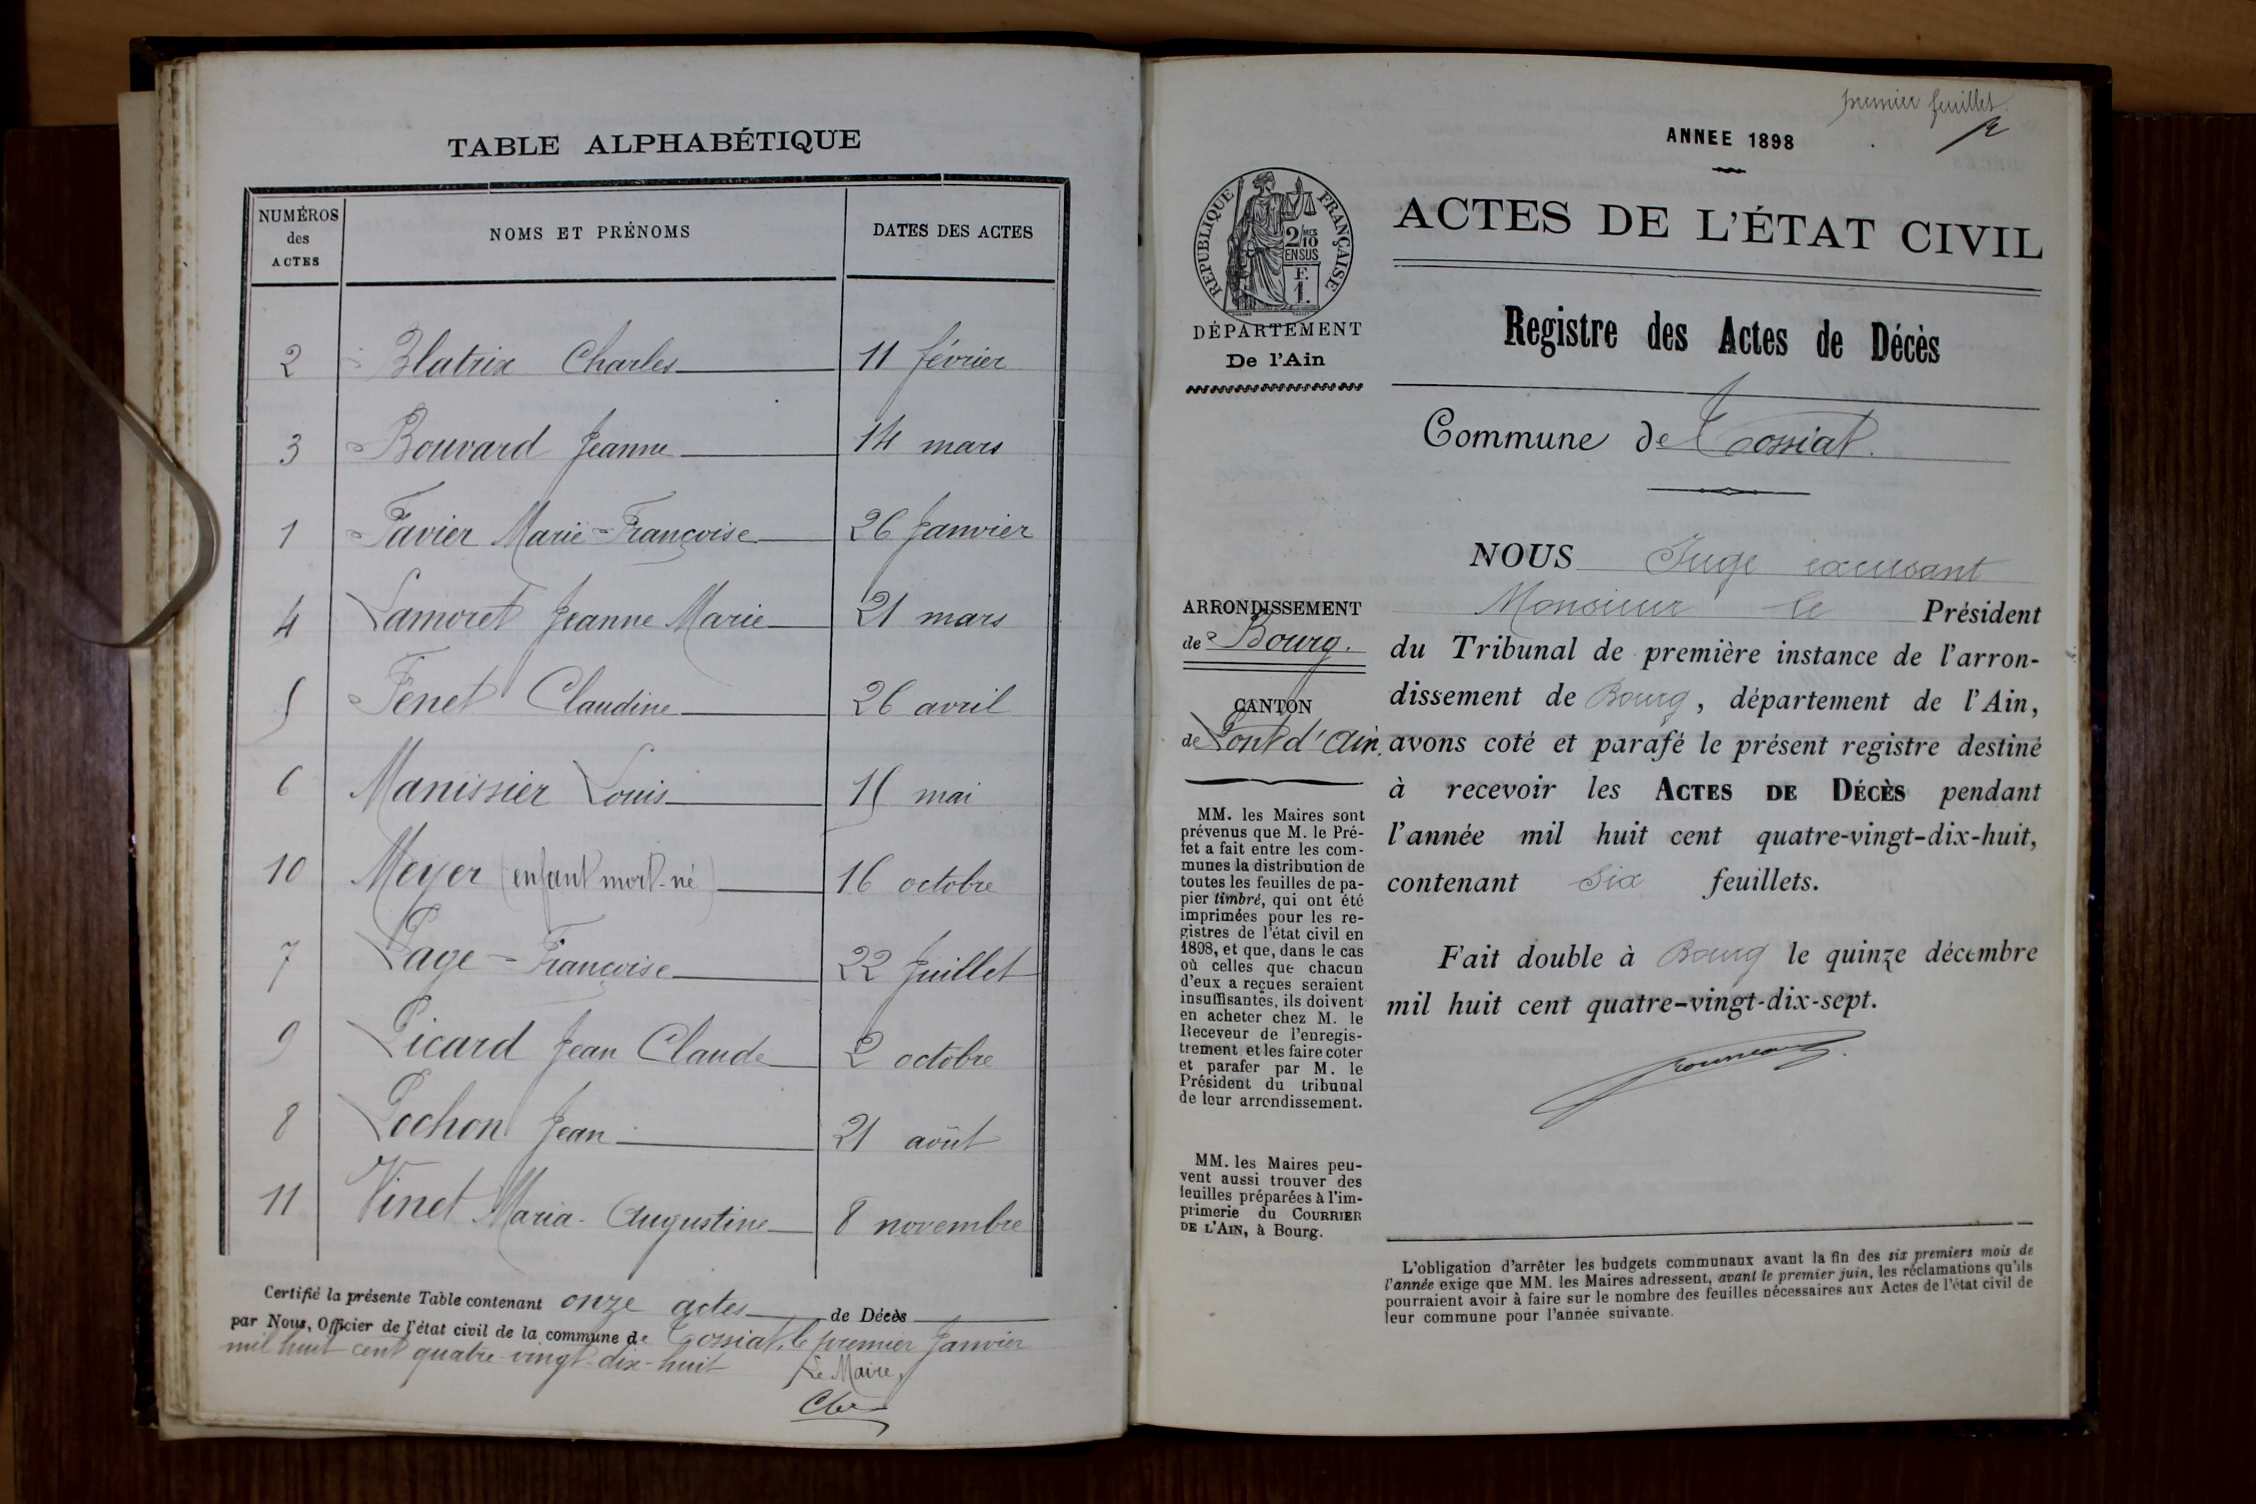 TABLE ALPHABÉTIQUE
NUMÉROS des ACTES NOMS ET PRÉNOMS DATES DES ACTES
2 Blatrix Charles 11 février
3 Bouvard Jeanne 14 mars
1 Favier Marie-Françoise 26 Janvier
4 Lamoret Jeanne Marie 21 mars
5 Fenet Claudine 26 avril
6 Manissier Louis 15 mai
10 Meyer (enfant mort-né) 16 octobre
7 Page - Françoise 22 Juillet
9 Picard Jean Claude 2 octobre
8 Pochon Jean 21 août
11 Vinet Maria-Augustine 8 novembre
Certifié la présente Table contenant onze actes de Décès
par Nous, Officier de l'état civil de la commune de Tossiat, le premier Janvier
mil huit cent quatre-vingt-dix-huit
Le Maire,
premier feuillet.
ANNEE 1898
RÉPUBLIQUE FRANÇAISE
2/10 MES
EN SUS
F.
1.
DÉPARTEMENT
De l'Ain
ACTES DE L'ÉTAT CIVIL
Registre des Actes de Décès
Commune de Tossiat.
ARRONDISSEMENT
de Bourg.
CANTON
de Pont d'Ain.
MM. les Maires sont
prévenus que M. le Pré-
fet a fait entre les com-
munes la distribution de
toutes les feuilles de pa-
pier timbré, qui ont été
imprimées pour les re-
gistres de l'état civil en
1898, et que, dans le cas
où celles que chacun
d'eux a reçues seraient
insuffisantes, ils doivent
en acheter chez M. le
Receveur de l'enregis-
trement et les faire coter
et parafer par M. le
Président du tribunal
de leur arrondissement.
MM. les Maires peu-
vent aussi trouver des
feuilles préparées à l'im-
primerie du COURRIER
DE L'AIN, à Bourg.
NOUS Juge excusant
Monsieur le Président
du Tribunal de première instance de l'arron-
dissement de Bourg, département de l'Ain,
avons coté et parafé le présent registre destiné
à recevoir les ACTES DE DÉCÈS pendant
l'année mil huit cent quatre-vingt-dix-huit,
contenant six feuillets.
Fait double à Bourg le quinze décembre
mil huit cent quatre-vingt-dix-sept.
L'obligation d'arrêter les budgets communaux avant la fin des six premiers mois de
l'année exige que MM. les Maires adressent, avant le premier juin, les réclamations qu'ils
pourraient avoir à faire sur le nombre des feuilles nécessaires aux Actes de l'état civil de
leur commune pour l'année suivante.